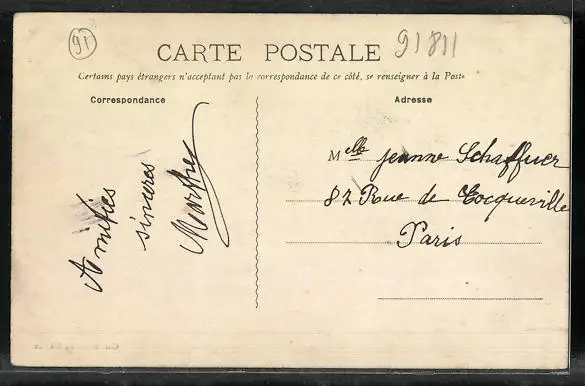 91
91811
CARTE POSTALE
Certains pays étrangers n'acceptant pas la correspondance de ce côté, se renseigner à la Poste
Correspondance
Adresse
Amitiés
sincères
Marthe
Melle Jeanne Schaffner
82 Rue de Tocqueville
Paris